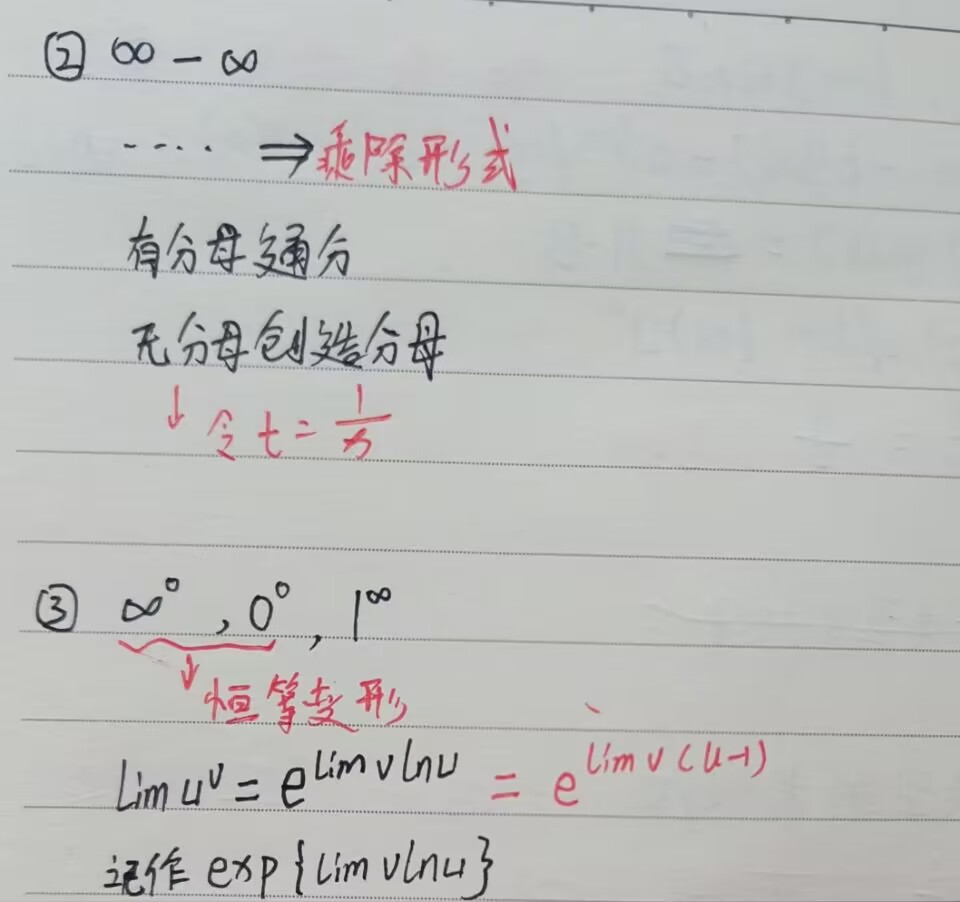 ② ∞ - ∞
···· ⇒ 乘除形式
有分母通分
无分母创造分母
↓ 令 t = 1/x
③ ∞⁰ , 0⁰ , 1^∞
↓ 恒等变形
lim u^v = e^{lim v ln u} = e^{lim v (u-1)}
记作 exp{lim v ln u}